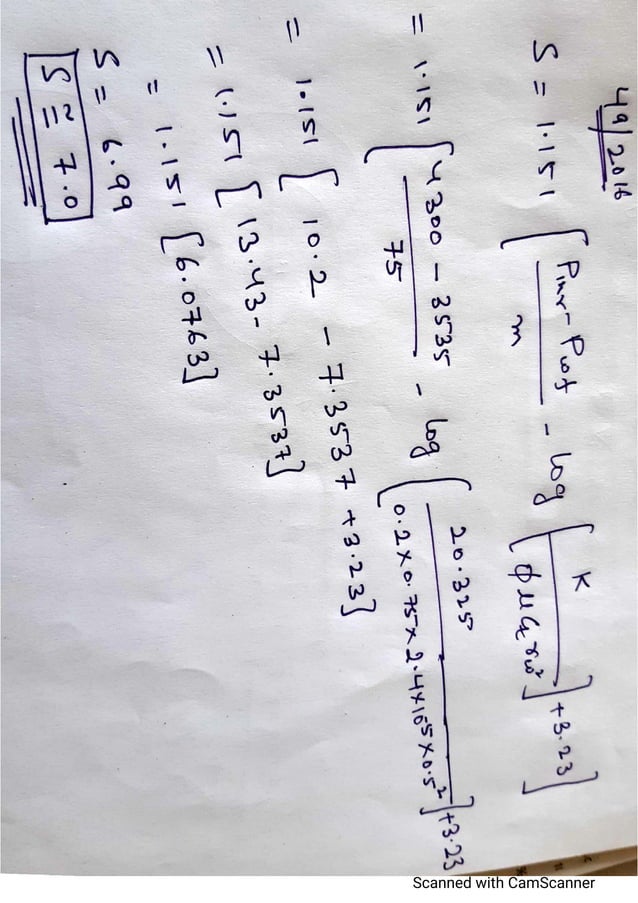 49/2016
S = 1.151 [ P1hr - Pwf / m - log [ K / ϕ μ Ct rw² ] + 3.23 ]
= 1.151 [ 4300 - 3535 / 75 - log [ 20.325 / 0.2 × 0.75 × 2.4×10⁻⁵ × 0.5² ] + 3.23
= 1.151 [ 10.2 - 7.3537 + 3.23 ]
= 1.151 [ 13.43 - 7.3537 ]
= 1.151 [ 6.0763 ]
S = 6.99
S ≅ 7.0
Scanned with CamScanner